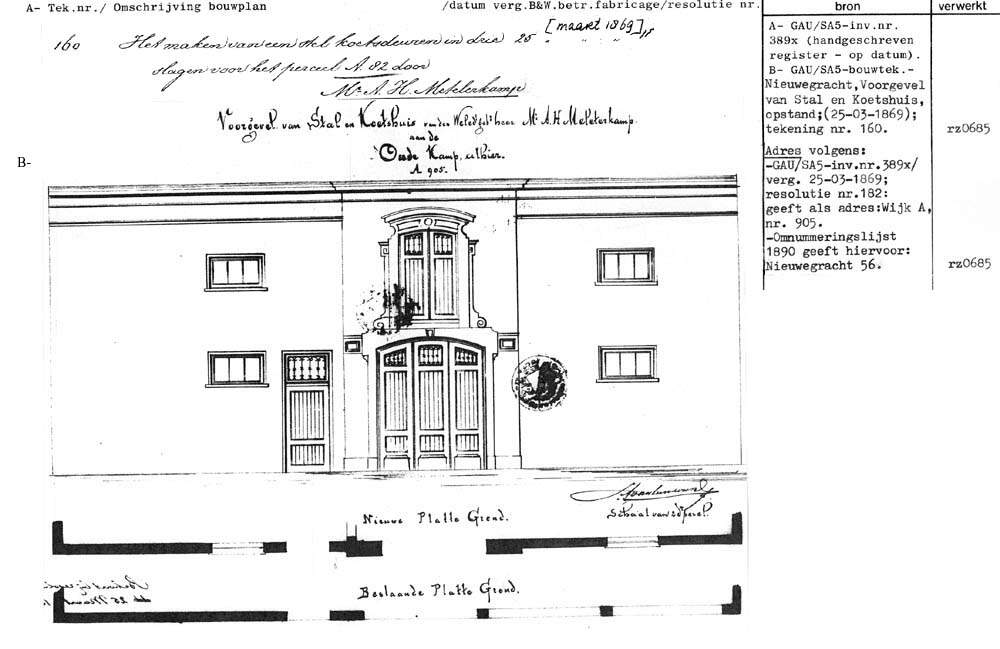 A- Tek.nr./ Omschrijving bouwplan /datum verg.B&W.betr.fabricage/resolutie nr.
bron
verwerkt
160 Het maken van een stel koetsdeuren in drie 25 [maart 1869]
slagen voor het perceel A. 82 door
Mr. A. H. Metelerkamp
Voorgevel van Stal en Koetshuis van den WelEdelgeb heer Mr. A. H. Meleterkamp.
aan de
Oude Kamp, alhier.
A 905.
B-
A- GAU/SA5-inv.nr.
389x (handgeschreven
register - op datum).
B- GAU/SA5-bouwtek.-
Nieuwegracht,Voorgevel
van Stal en Koetshuis,
opstand;(25-03-1869);
tekening nr. 160.
rz0685
Adres volgens:
-GAU/SA5-inv.nr.389x/
verg. 25-03-1869;
resolutie nr.182:
geeft als adres:Wijk A,
nr. 905.
-Omnummeringslijst
1890 geeft hiervoor:
Nieuwegracht 56.
rz0685
Schaal van
Nieuwe Platte Grond.
Bestaande Platte Grond.